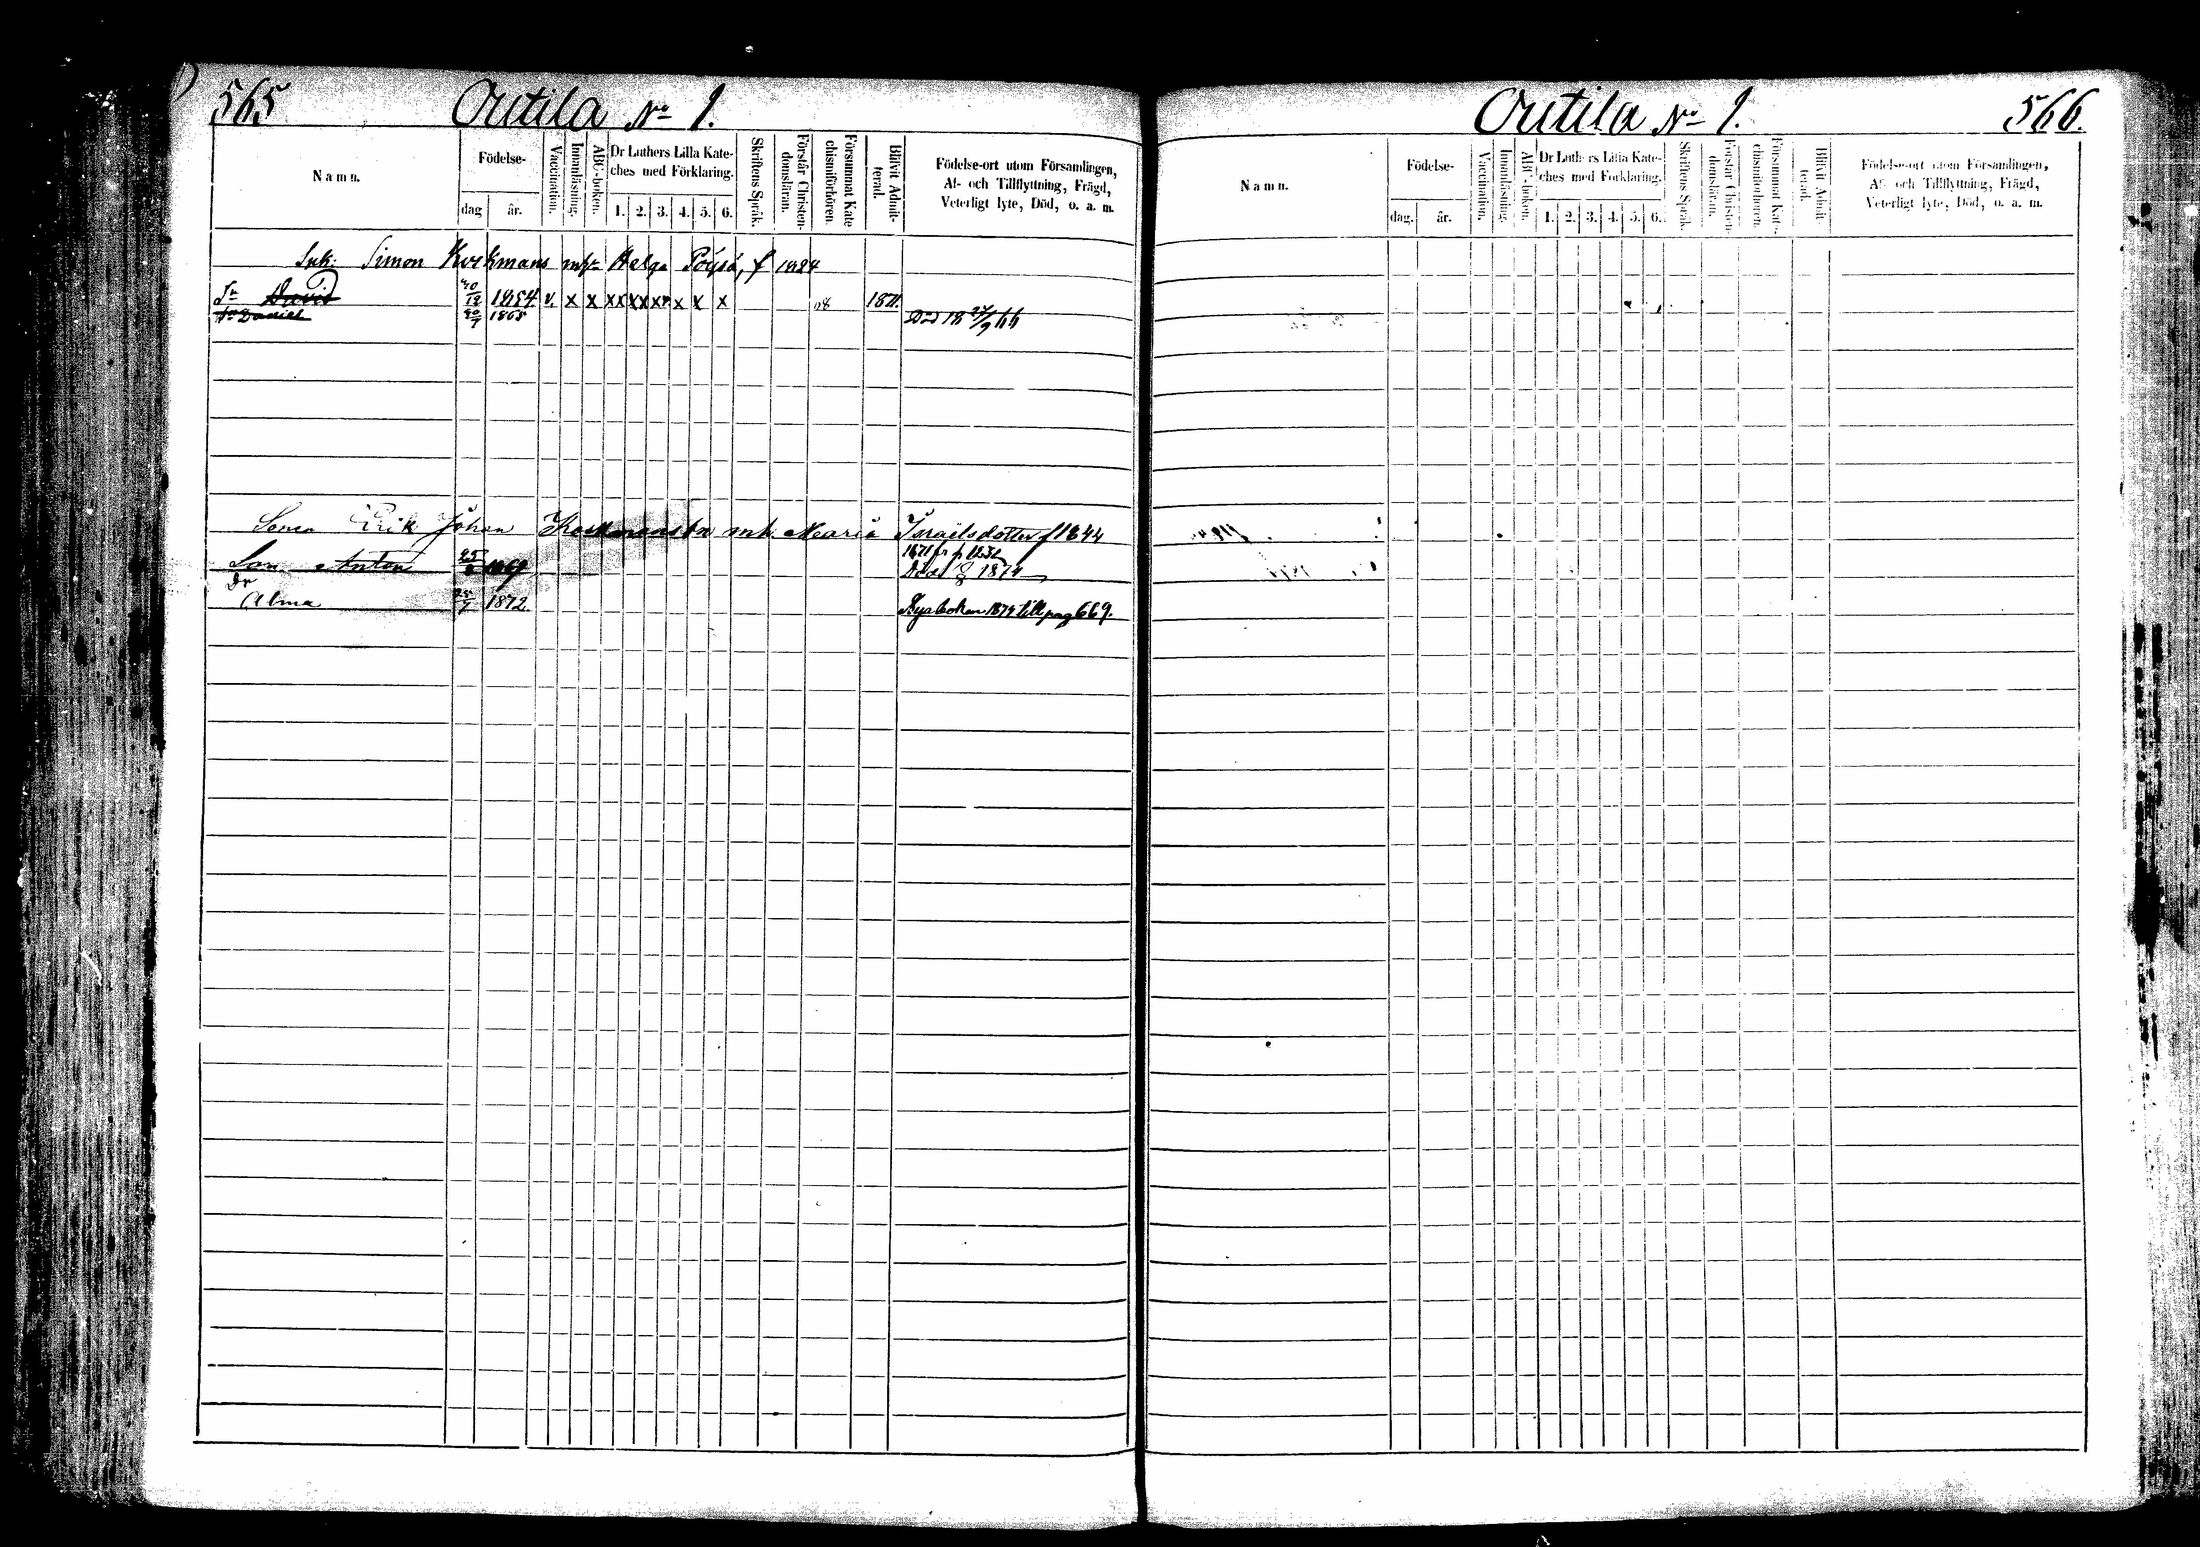 565 Outila No 1.
Namn.
Födelse-
dag
år.
Vaccination.
Innanläsning.
ABC-boken.
Dr Luthers Lilla Kate-
ches med Förklaring.
1. 2. 3. 4. 5. 6.
Skriftens Språk.
Förstår Christen-
domsläran.
Försummat Kate
chismiförhören.
Blifvit Admit-
terad.
Födelse-ort utom Församlingen,
Af- och Tillflyttning, Frägd,
Veterligt lyte, Död, o. a. m.
Simon Korkmans Helga f 1824
Sr David 1854 v. x x xx xx xx x x x 1871.
Sr Daniel 1865 Död 18 27/9 66
Erik Johan mh. Maria Israelsdotter f 1844
Son Anton 25 1869 1874
Dr
Alma 1872 Nya boken 1874 till pag 669.
Outila No 1. 566.
Namn.
Födelse-
dag.
år.
Vaccination.
Innanläsning.
ABC-boken.
Dr Luthers Lilla Kate-
ches med Förklaring.
1. 2. 3. 4. 5. 6.
Skriftens Språk.
Förstår Christen-
domsläran.
Försummat Kate-
chismiförhören.
Blifvit Admit-
terad.
Födelse-ort utom Församlingen,
Af- och Tillflyttning, Frägd,
Veterligt lyte, Död, o. a. m.